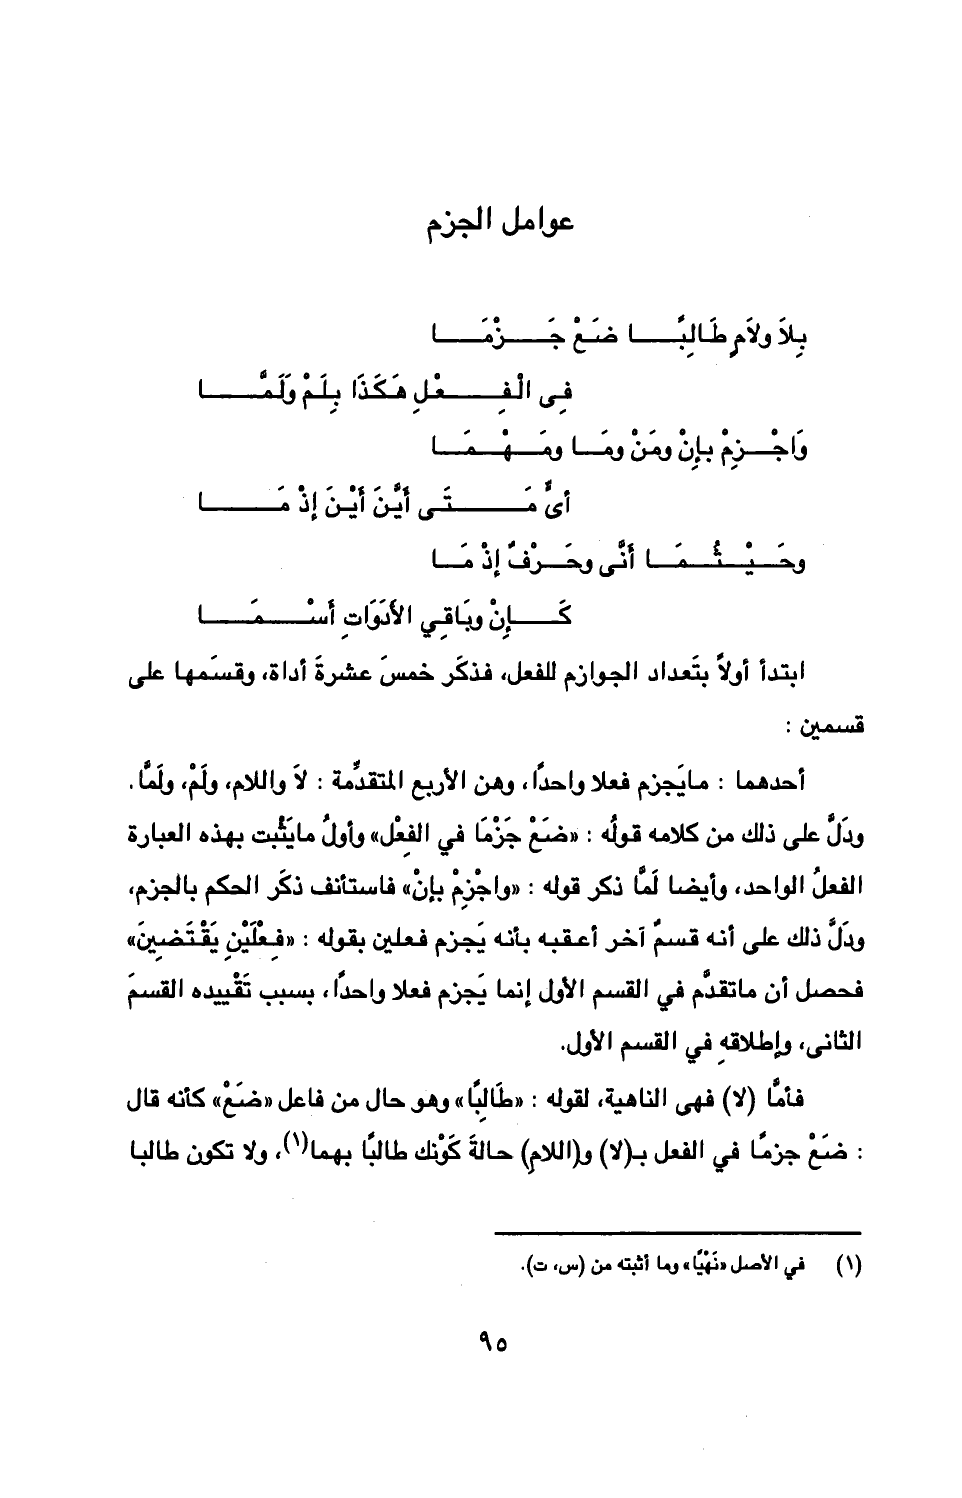 عوامل الجزم
بِلاَ ولاَمٍ طَالِبًا ضَعْ جَزْمَا
فِى الْفِعْلِ هَكَذَا بِلَمْ وَلَمَّا
وَاجْزِمْ بإِنْ ومَنْ ومَا ومَهْمَا
أىٌّ مَتَى أيَّنَ أيْنَ إذْ مَا
وحَيْثُمَا أنَّى وحَرْفٌ إذْ مَا
كَإِنْ وبَاقِي الأدَوَاتِ أسْمَا
ابتدأ أولاً بتَعداد الجوازم للفعل، فذكَر خمسَ عشرةَ أداة، وقسَمها على
قسمين :
أحدهما : مايَجزم فعلا واحدًا، وهن الأربع المتقدِّمة : لاَ واللام، ولَمْ، ولَمَّا.
ودَلَّ على ذلك من كلامه قولُه : «ضَعْ جَزْمَا في الفعْلِ» وأولُ مايَثْبت بهذه العبارة
الفعلُ الواحد، وأيضا لَمَّا ذكر قوله : «واجْزِمْ بإنْ» فاستأنف ذكَر الحكم بالجزم،
ودَلَّ ذلك على أنه قسمٌ آخر أعقبه بأنه يَجزم فعلين بقوله : «فِعْلَيْنِ يَقْتَضِينَ»
فحصل أن ماتقدَّم في القسم الأول إنما يَجزم فعلا واحدًا، بسبب تَقْييده القسمَ
الثانى، وإطلاقهِ في القسم الأول.
فأمَّا (لا) فهى الناهية، لقوله : «طَالِبًا» وهو حال من فاعل «ضَعْ» كأنه قال
: ضَعْ جزمًا في الفعل بـ(لا) و(اللامِ) حالةَ كَوْنك طالبًا بهما(١)، ولا تكون طالبا
(١) في الأصل «نَهْيًا» وما أثبته من (س، ت).
٩٥